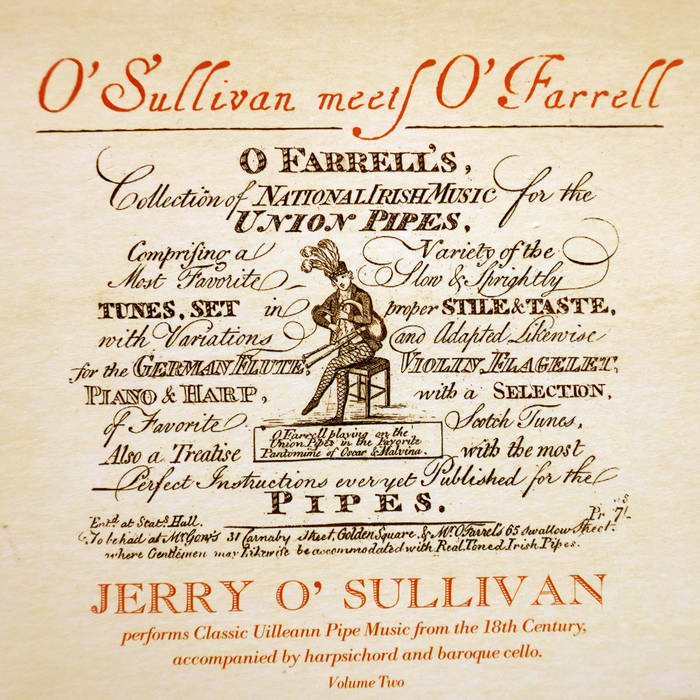 O'Sullivan meets O'Farrell
O FARRELL'S,
Collection of NATIONAL IRISH MUSIC for the
UNION PIPES,
Comprising a Variety of the
Most Favorite Slow & Sprightly
TUNES, SET in proper STILE & TASTE,
with Variations and Adapted Likewise
for the GERMAN FLUTE, VIOLIN, FLAGELET,
PIANO & HARP, with a SELECTION,
of Favorite Scotch Tunes,
O Farrell playing on the
Union Pipes in the Favorite
Pantomime of Oscar & Malvina.
Also a Treatise with the most
Perfect Instructions ever yet Published for the
PIPES.
Pr 7/-
Entd. at Stats. Hall.
To be had at Mr. Gow's 31 Carnaby Street, Golden Square, & Mr. O'Farrel's 65 Swallow Street.
where Gentlemen may Likewise be accommodated with Real Toned Irish Pipes.
JERRY O' SULLIVAN
performs Classic Uilleann Pipe Music from the 18th Century,
accompanied by harpsichord and baroque cello.
Volume Two